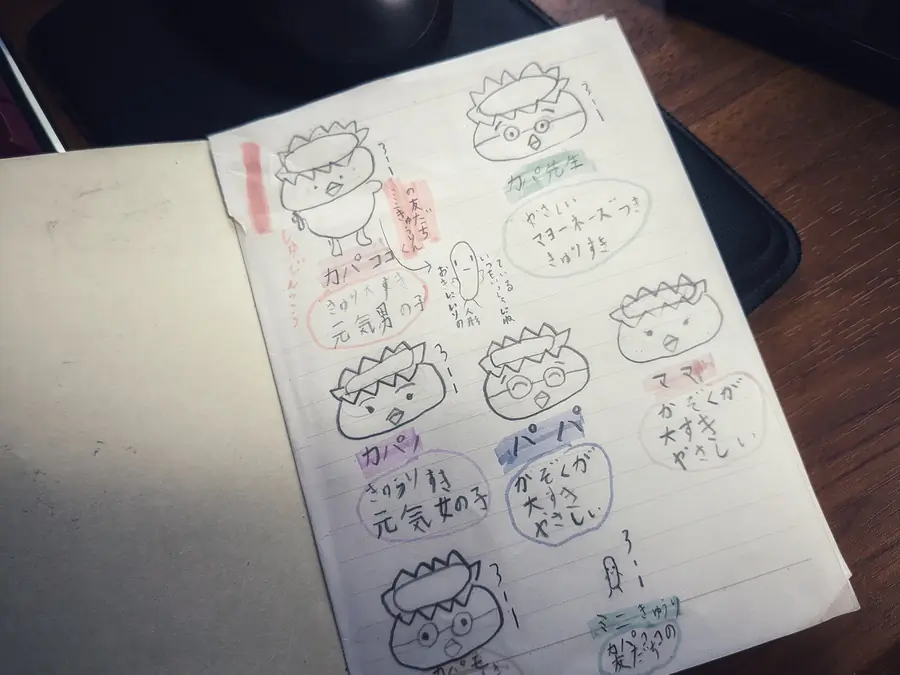 カパ先生
やさしい
マヨーネーズつき
きゅりすき
の友だち
きゅうりんくん
カパココ
きゅり大すき
元気男の子
ている
いつもいっしょに
おきにいりの
人形
ママ
かぞくが
大すき
やさしい
カパリ
きゅうりすき
元気女の子
パパ
かぞくが
大すき
やさしい
ミニきゅうり
カパココの
友だちの